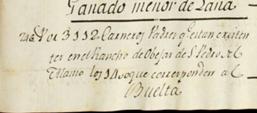 Ganado menor de Lana
Por 3112 Carneros Padres q.e estan existen
tes en el Rancho de Obejas de S. Pedro
Alamo los 14 voque corresponden al
Buelta